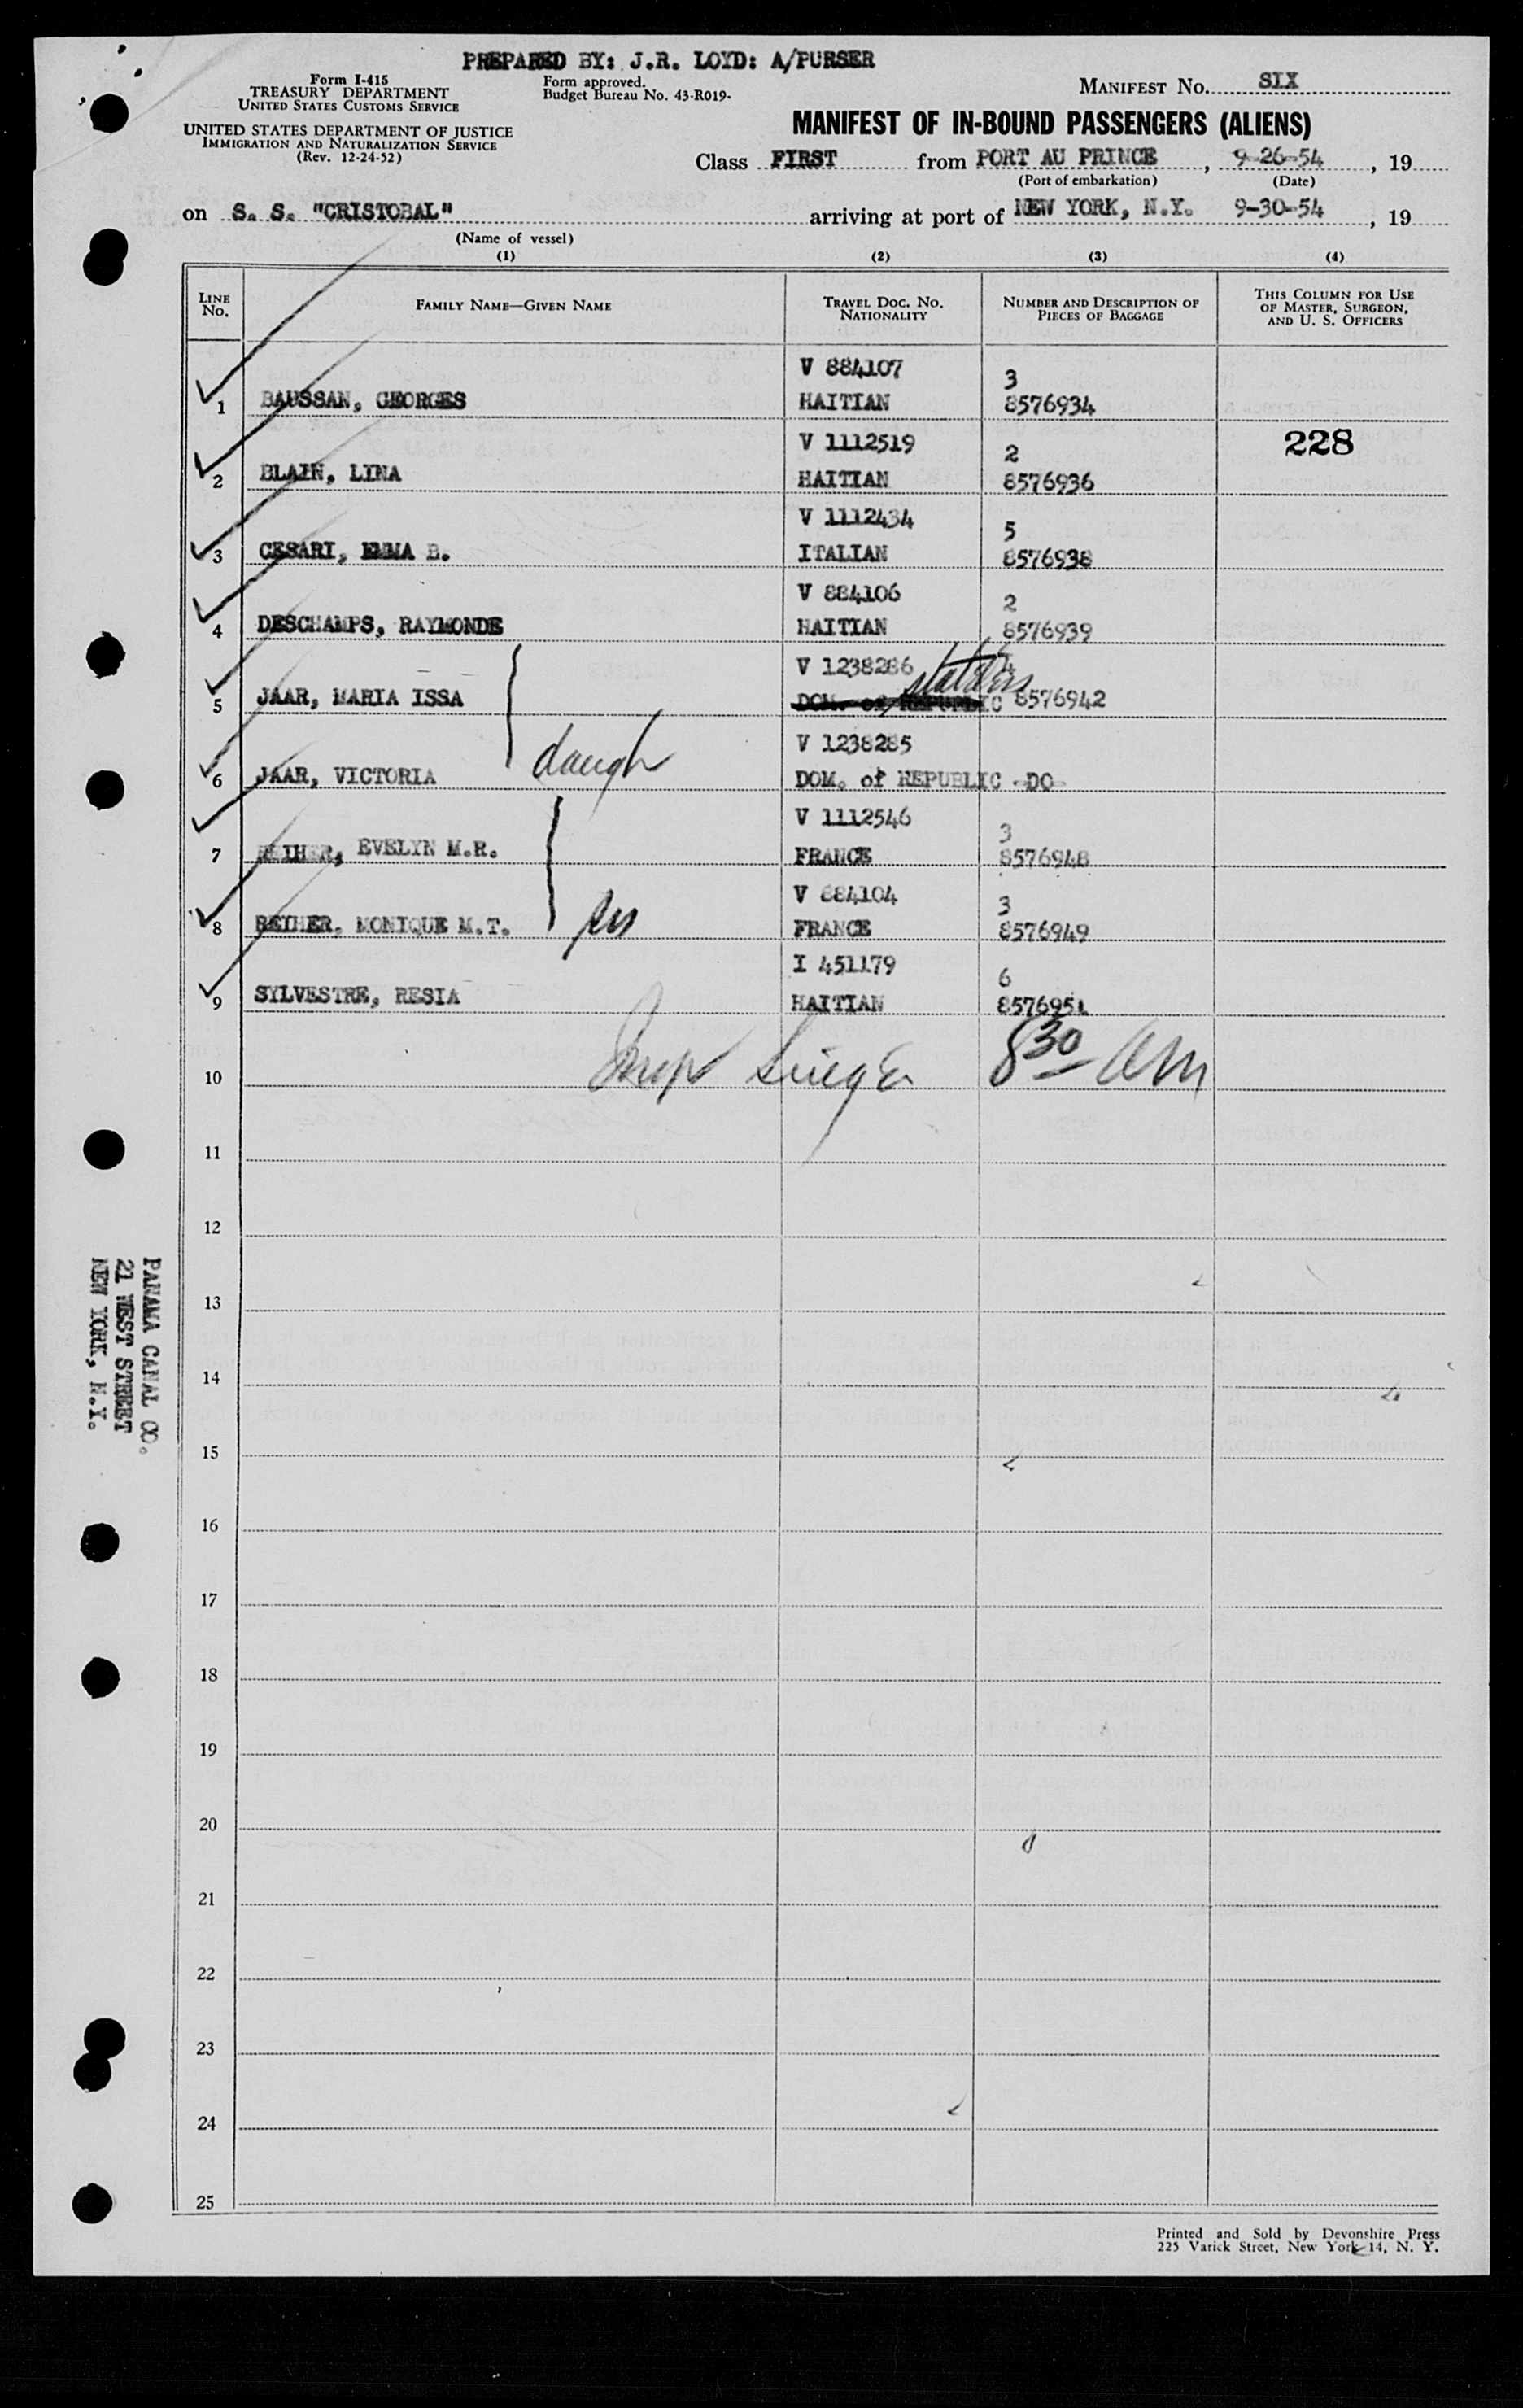 PREPARED BY: J.R. LOYD: A/PURSER
Form I-415
TREASURY DEPARTMENT
UNITED STATES CUSTOMS SERVICE
UNITED STATES DEPARTMENT OF JUSTICE
IMMIGRATION AND NATURALIZATION SERVICE
(Rev. 12-24-52)
Form approved.
Budget Bureau No. 43-R019-
MANIFEST NO. SIX
MANIFEST OF IN-BOUND PASSENGERS (ALIENS)
Class FIRST from PORT AU PRINCE, 9-26-54, 19
(Port of embarkation) (Date)
on S. S. "CRISTOBAL" arriving at port of NEW YORK, N.Y. 9-30-54, 19
(Name of vessel)
(1) (2) (3) (4)
LINE NO. FAMILY NAME—GIVEN NAME TRAVEL DOC. NO. NATIONALITY NUMBER AND DESCRIPTION OF PIECES OF BAGGAGE THIS COLUMN FOR USE OF MASTER, SURGEON, AND U. S. OFFICERS
V 884107 3
1 BAUSSAN, GEORGES HAITIAN 8576934
V 1112519 2 228
2 BLAIN, LINA HAITIAN 8576936
V 1112434 5
3 CESARI, EMMA B. ITALIAN 8576938
V 884106 2
4 DESCHAMPS, RAYMONDE HAITIAN 8576939
V 1238286 4
5 JAAR, MARIA ISSA DOM. of REPUBLIC 8576942
V 1238285
6 JAAR, VICTORIA daugh DOM. of REPUBLIC -DO-
V 1112546 3
7 REIHER, EVELYN M.R. FRANCE 8576948
V 884104 3
8 REIHER, MONIQUE M.T. FRANCE 8576949
I 451179 6
9 SYLVESTRE, RESIA HAITIAN 8576951
10 8 30 am
11
12
13
14
15
16
17
18
19
20
21
22
23
24
25
PANAMA CANAL CO.
21 WEST STREET
NEW YORK, N.Y.
Printed and Sold by Devonshire Press
225 Varick Street, New York 14, N. Y.